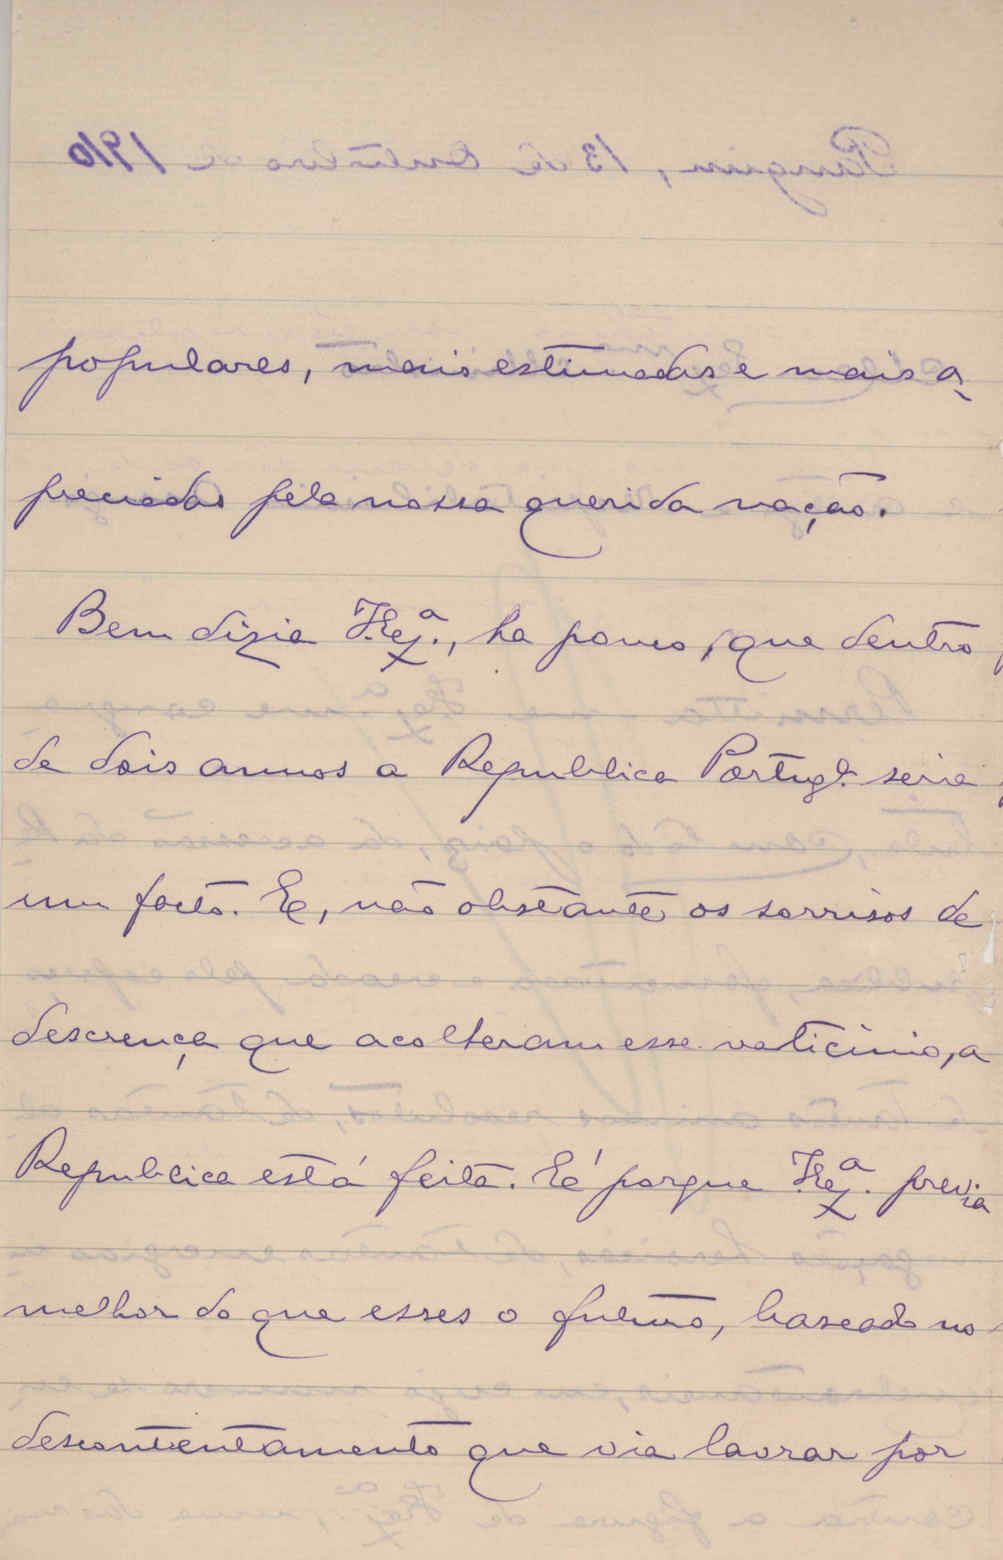 populares, mais estimadas e mais a-
preciadas pela nossa querida nação.
Bem dizia V. Exª., ha pouco, que dentro
de dois annos a Republica Portugª. seria
um facto. E, não obstante os sorrisos de
descrença que acolheram esse vaticinio, a
Republica está feita. É porque V. Exª. previa
melhor do que esses o futuro, baseado no
descontentamento que via lavrar por